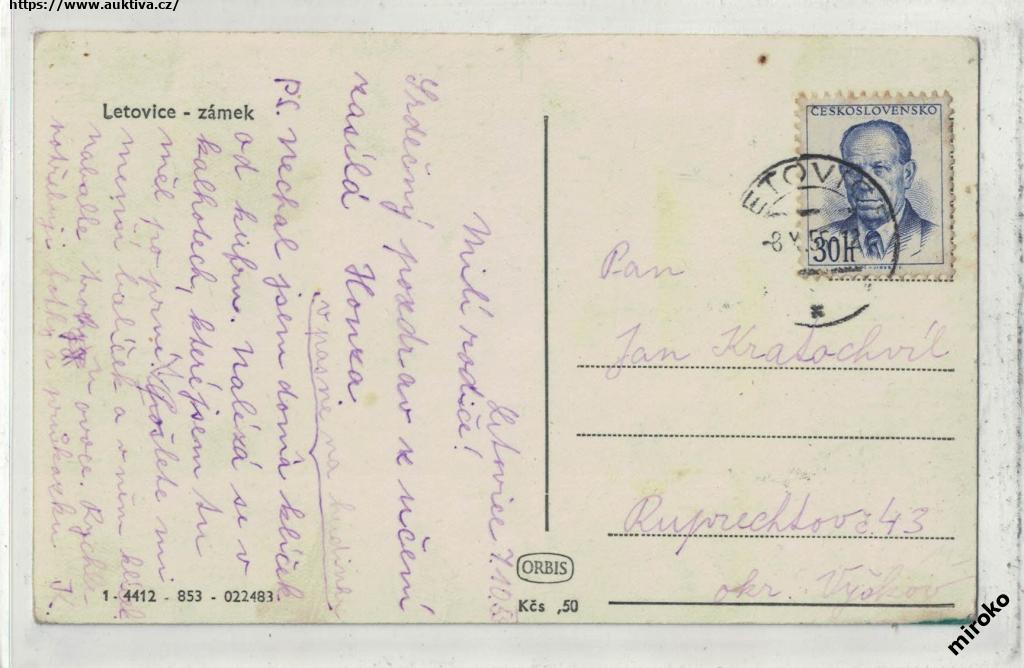 https://www.auktiva.cz/
Letovice - zámek
Letovice 7.10.
Milí rodiče!
Srdečný pozdrav z učení
zasílá Honza.
v prasne na hodinky
PS. Nechal jsem doma klíček
od kufru. Nalézá se v
kalhotech, které jsem tu
měl po první. Pošlete mi
menší balíček a v něm
nabalte trochu ovoce. Rychle
potřebuji
J.K.
1 - 4412 - 853 - 022483
ORBIS
Kčs ,50
ČESKOSLOVENSKO
30H
LETOVICE
-8.X.55-12
Pan
Jan Kratochvíl
Ruprechtov č 43
okr. Vyškov
miroko